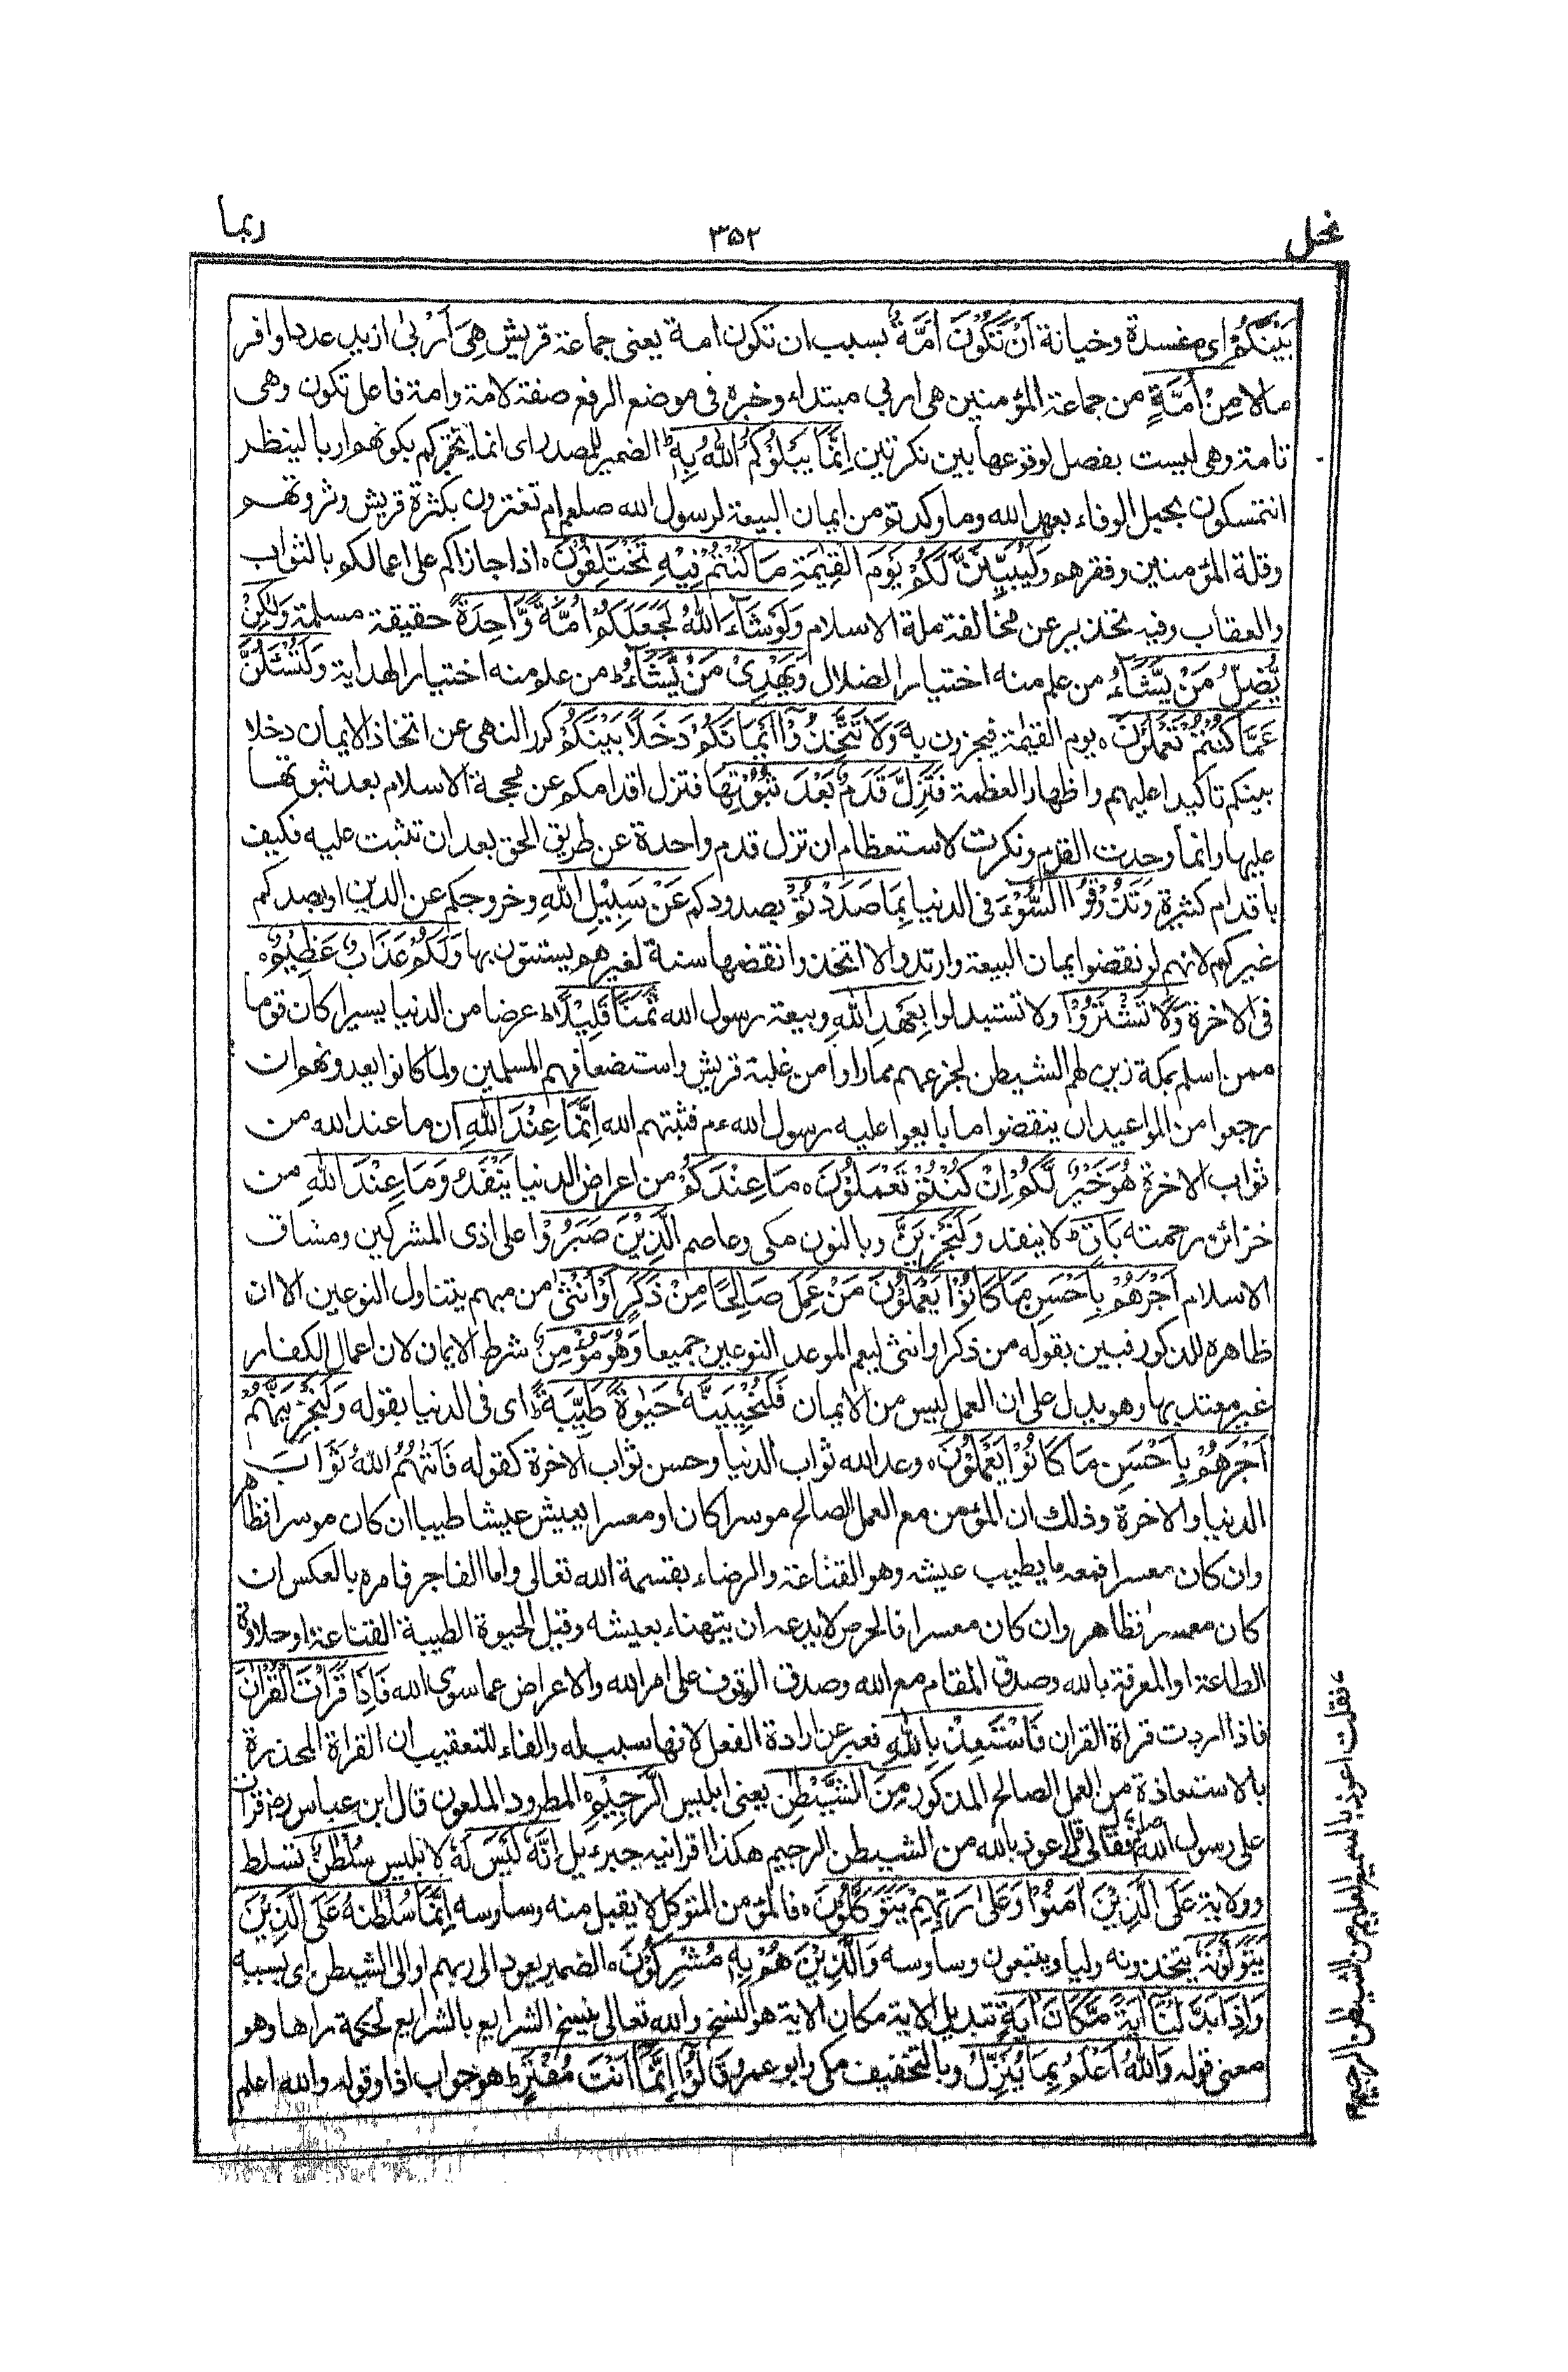 نحل
۳۵۲
ربما
بَيْنَكُمْ اى مفسدة وخيانة اَنْ تَكُوْنَ اُمَّةٌ بسبب ان تكون امة يعنى جماعة قريش هِىَ اَرْبٰى ازيد عددا و افر
مالا مِنْ اُمَّةٍ من جماعة المؤمنين هى اربي مبتداء وخبره فى موضع الرفع صفة لامة وامة فاعل تكون وهى
تامة وهى ليست بفصل لوقوعها بين نكرتين اِنَّمَا يَبْلُوْكُمُ اللّٰهُ بِهٖ ط الضمير للمصدر اى انما يختبركم بكونهم اربا لينظر
اتتمسكون بحبل الوفاء بعهد الله وما وكدتم من ايمان البيعة لرسول الله صلعم ام تغترون بكثرة قريش وثروتهم
وقلة المؤمنين وفقرهم وَلَيُبَيِّنَنَّ لَكُمْ يَوْمَ الْقِيٰمَةِ مَا كُنْتُمْ فِيْهِ تَخْتَلِفُوْنَ ٥ اذا جازاكم على اعمالكم بالثواب
والعقاب وفيه تحذير عن مخالفة ملة الاسلام وَلَوْ شَآءَ اللّٰهُ لَجَعَلَكُمْ اُمَّةً وَّاحِدَةً حقيقة مسلمة وَلٰكِنْ
يُّضِلُّ مَنْ يَّشَآءُ من علم منه اختيار الضلال وَيَهْدِىْ مَنْ يَّشَآءُ ط من علم منه اختيار الهداية وَلَتُسْئَلُنَّ
عَمَّا كُنْتُمْ تَعْمَلُوْنَ ٥ يوم القيٰمة فيجزون به وَلَا تَتَّخِذُوْٓا اَيْمَانَكُمْ دَخَلًا بَيْنَكُمْ كرر النهى عن اتخاذ الايمان دخلا
بينكم تاكيدا عليهم واظهار العظمة فَتَزِلَّ قَدَمٌ بَعْدَ ثُبُوْتِهَا فتزل اقدامكم عن محجة الاسلام بعد ثبوتها
عليها وانما وحدت القدم ونكرت لاستعظام ان تزل قدم واحدة عن طريق الحق بعد ان تثبت عليه فكيف
باقدام كثيرة وَتَذُوْقُوا السُّوْٓءَ فى الدنيا بِمَا صَدَدْتُّمْ بصدودكم عَنْ سَبِيْلِ اللّٰهِ وخروجكم عن الدين او بصدكم
غيركم لانهم لو نقضوا ايمان البيعة وارتدوا لاتخذوا نقضها سنة لغيرهم يستنون بها وَلَكُمْ عَذَابٌ عَظِيْمٌ ٥
فى الاخرة وَلَا تَشْتَرُوْا ولا تستبدلوا بِعَهْدِ اللّٰهِ وبيعة رسول الله ثَمَنًا قَلِيْلًا ط عرضا من الدنيا يسيرا كان قوما
ممن اسلم بمكة زين لهم الشيطن لجزعهم مما راوا من غلبة قريش واستضعافهم المسلمين ولما كانوا يعدونهم ان
رجعوا من المواعيد ان ينقضوا ما بايعوا عليه رسول الله ءم فثبتهم الله اِنَّمَا عِنْدَ اللّٰهِ ان ما عند الله من
ثواب الاخرة هُوَ خَيْرٌ لَّكُمْ اِنْ كُنْتُمْ تَعْمَلُوْنَ ٥ مَا عِنْدَكُمْ من اعراض الدنيا يَنْفَدُ وَمَا عِنْدَ اللّٰهِ من
خزائن رحمته بَاقٍ ط لا ينفد وَلَنَجْزِيَنَّ وبالنون مكى وعاصم الَّذِيْنَ صَبَرُوْا على اذى المشركين ومشاق
الاسلام اَجْرَهُمْ بِاَحْسَنِ مَا كَانُوْا يَعْمَلُوْنَ مَنْ عَمِلَ صَالِحًا مِنْ ذَكَرٍ اَوْ اُنْثٰى من مبهم يتناول النوعين الا ان
ظاهره للذكور فبين بقوله من ذكر او انثى ليعم الموعد النوعين جميعا وَهُوَ مُؤْمِنٌ شرط الايمان لان اعمال الكفار
غير معتد بها وهو يدل على ان العمل ليس من الايمان فَلَنُحْيِيَنَّهٗ حَيٰوةً طَيِّبَةً ط اى فى الدنيا بقوله وَلَنَجْزِيَنَّهُمْ
اَجْرَهُمْ بِاَحْسَنِ مَا كَانُوْا يَعْمَلُوْنَ ٥ وعد الله ثواب الدنيا وحسن ثواب الاخرة كقوله فَاٰتٰهُمُ اللّٰهُ ثَوَابَ
الدنيا والاخرة وذلك ان المؤمن مع العمل الصالح موسرا كان او معسرا يعيش عيشا طيبا ان كان موسرا فظاهر
وان كان معسرا فمعه ما يطيب عيشه وهو القناعة والرضاء بقسمة الله تعالى واما الفاجر فامره بالعكس ان
كان معسرا فظاهر وان كان معسرا فالحرص لا يدعه ان يتهناء بعيشه وقيل الحيوة الطيبة القناعة او حلاوة
الطاعة او المعرفة بالله وصدق المقام مع الله وصدق الوقوف على امر الله والاعراض عما سوى الله فَاِذَا قَرَاْتَ الْقُرْاٰنَ
فاذا اردت قراة القران فَاسْتَعِذْ بِاللّٰهِ فعبر عن ارادة الفعل لانها سبب له والفاء للتعقيب ان القراة المحذرة
بالاستعاذة من العمل الصالح المذكور مِنَ الشَّيْطٰنِ يعنى ابليس الرَّجِيْمِ ٥ المطرود الملعون قال ابن عباس رض قران
على رسول الله صلعم فقال لى قل اعوذ بالله من الشيطن الرجيم هكذا اقرانيه جبرءيل اِنَّهٗ لَيْسَ لَهٗ لابليس سُلْطٰنٌ تسلط
وولاية عَلَى الَّذِيْنَ اٰمَنُوْا وَعَلٰى رَبِّهِمْ يَتَوَكَّلُوْنَ ٥ فالمؤمن المتوكل لا يقبل منه وساوسه اِنَّمَا سُلْطٰنُهٗ عَلَى الَّذِيْنَ
يَتَوَلَّوْنَهٗ يتخذونه وليا ويتبعون وساوسه وَالَّذِيْنَ هُمْ بِهٖ مُشْرِكُوْنَ ٥ الضمير يعود الى ربهم او الى الشيطن اى بسببه
وَاِذَا بَدَّلْنَآ اٰيَةً مَّكَانَ اٰيَةٍ تبديل الاية مكان الاية هو النسخ والله تعالى ينسخ الشرايع بالشرايع لحكمة راها وهو
معنى قوله وَاللّٰهُ اَعْلَمُ بِمَا يُنَزِّلُ وبالتخفيف مكى وابو عمرو قَالُوْٓا اِنَّمَآ اَنْتَ مُفْتَرٍ ط هو جواب اذا وقوله والله اعلم
فقلت اعوذ بالسميع العليم من الشيطن الرجيم